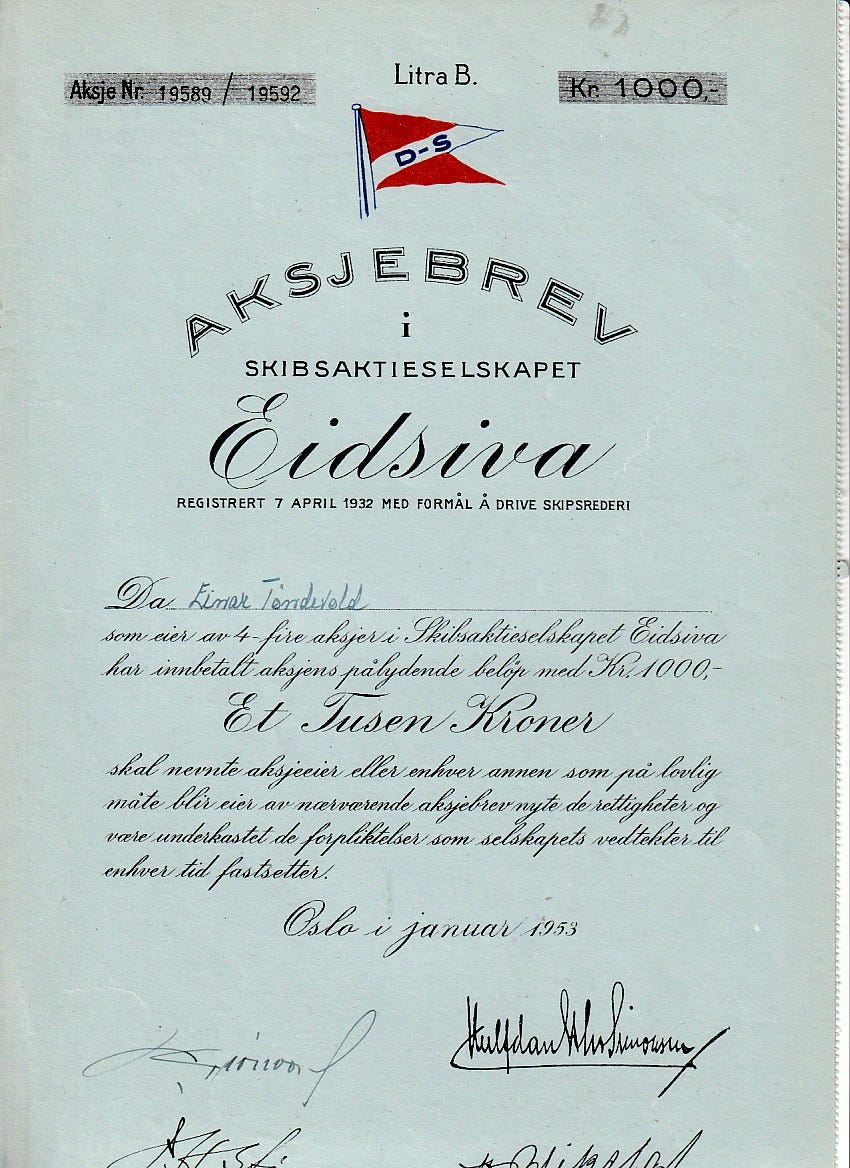 Litra B.
Aksje Nr. 19589 / 19592
Kr. 1000,-
D-S
AKSJEBREV
i
SKIBSAKTIESELSKAPET
Eidsiva
REGISTRERT 7 APRIL 1932 MED FORMÅL Å DRIVE SKIPSREDERI
Da Einar Tøndevold
som eier av 4-fire aksjer i Skibsaktieselskapet Eidsiva
har innbetalt aksjens pålydende beløp med Kr. 1000,-
Et Tusen Kroner
skal nevnte aksjeeier eller enhver annen som på lovlig
måte blir eier av nærværende aksjebrev nyte de rettigheter og
være underkastet de forpliktelser som selskapets vedtekter til
enhver tid fastsetter.
Oslo i januar 1953